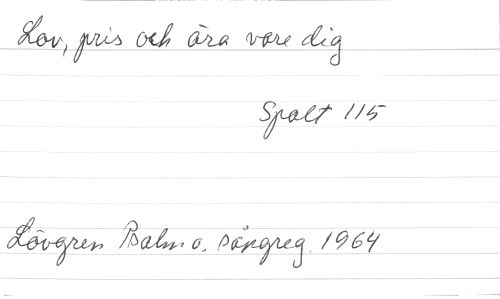 Lov, pris och ära vare dig
Spalt 115
Lövgren Psalm o. sångreg. 1964